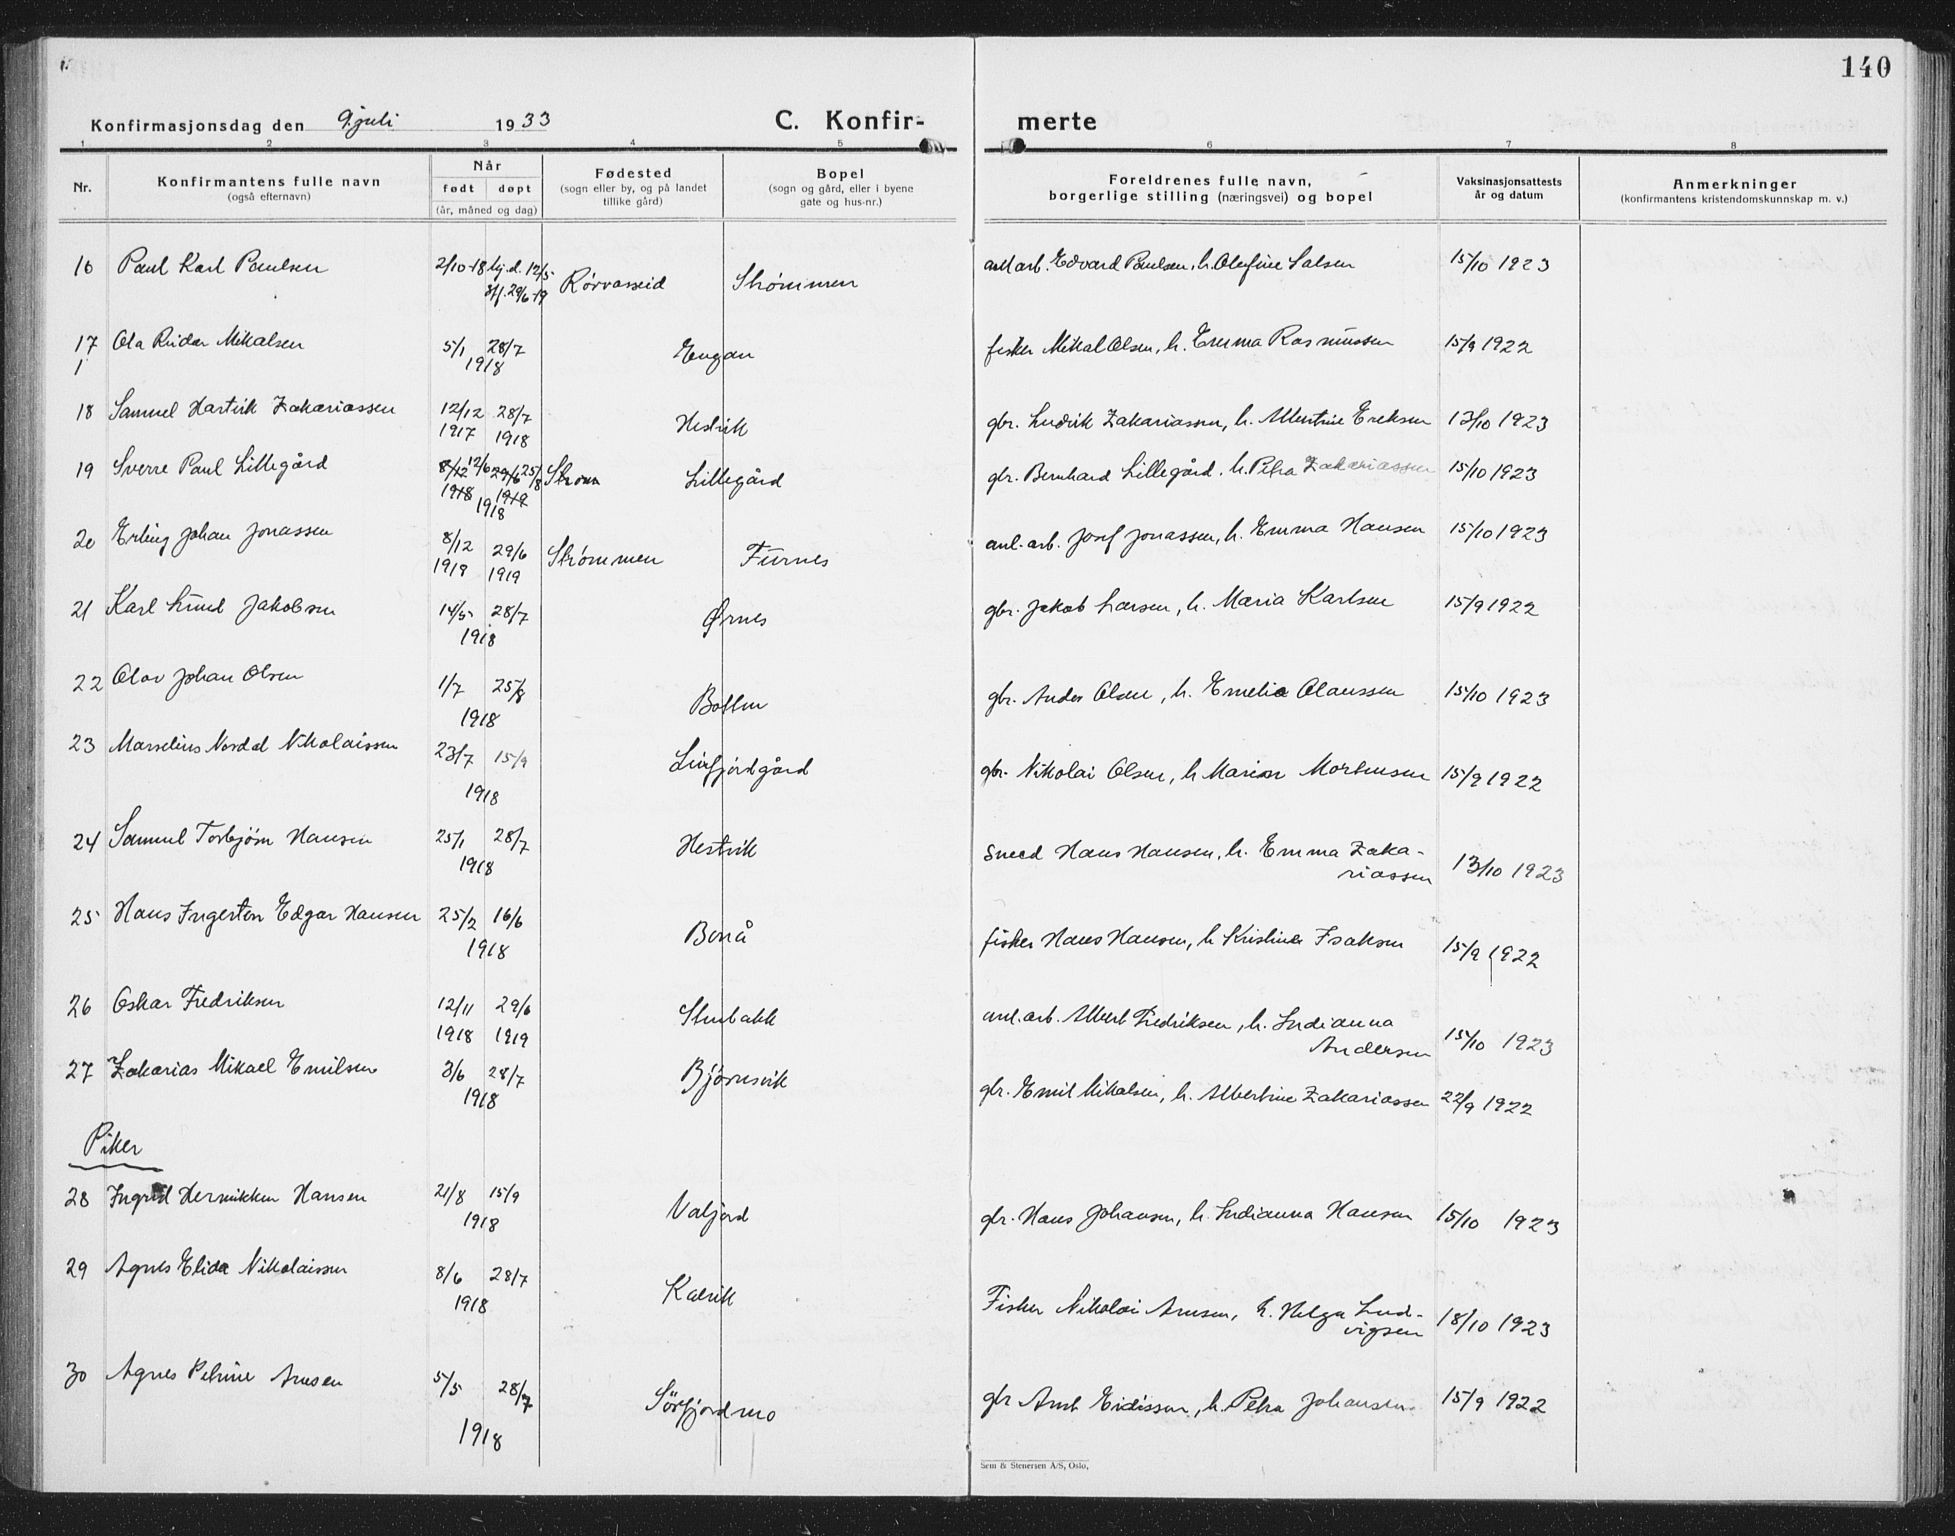 140
Konfirmasjonsdag den 9. juli 1933 C. Konfir- merte
1 2 3 4 5 6 7 8
Nr. Konfirmantens fulle navn (også efternavn) Når født døpt (år, måned og dag) Fødested (sogn eller by, og på landet tillike gård) Bopel (sogn og gård, eller i byene gate og hus-nr.) Foreldrenes fulle navn, borgerlige stilling (næringsvei) og bopel Vaksinasjonsattests år og datum Anmerkninger (konfirmantens kristendomskunnskap m. v.)
16 Paul Karl Paulsen 2/10-18 hj.d. 12/5- stf. 29/6-19 Rørvasseid Strømmen anl.arb. Edvard Paulsen, h. Olufine Salsen 15/10 1923
17 Ola Reidar Mikalsen 5/1 28/7 1918 Engan fisker Mikal Olsen, h. Emma Rasmussen 15/9 1922
1
18 Samuel Hartvik Zakariassen 12/12 1917 28/7 1918 Hestvik gbr. Ludvik Zakariassen, h. Albertine Eriksen 13/10 1923
19 Sverre Paul Lillegård 8/12 1918 12/6 29/6 1919 25/8 1918 Strøm Lillegård gbr. Bernhard Lillegård, h. Petra Zakariassen 15/10 1923
20 Erling Johan Jonassen 8/12 1918 29/6 1919 Strømmen Furnes anl. arb. Josef Jonassen, h. Emma Hansen 15/10 1923
21 Karl Lund Jakobsen 14/5- 28/7 1918 Ørnes gbr. Jakob Larsen, h. Maria Karlsen 15/9 1922
22 Olav Johan Olsen 1/7 25/8 1918 Botten gbr. Anders Olsen, h. Emelie Olaussen 15/10 1923
23 Marselius Nordal Nikolaissen 23/7 15/9 1918 Leirfjordgård gbr. Nikolai Olsen, h. Marion Mortensen 15/9 1922
24 Samuel Torbjørn Hansen 25/1 28/7 1918 Hestvik Smed Hans Hansen, h. Emma Zaka-
riassen 13/10 1923
25 Hans Ingerten Edgar Hansen 25/2 16/6 1918 Bonå fisker Hans Hansen, h. Kristine Isaksen 15/9 1922
26 Oskar Fredriksen 12/11 1918 29/6 1919 Stenbakk anl. arb. Albert Fredriksen, h. Indianna
Andersen 15/10 1923
27 Zakarias Mikael Emilsen 3/6 28/7 1918 Bjørnsvik gbr. Emil Mikalsen, h. Albertine Zakariassen 22/9 1922
Piker
28 Ingrid Hennikken Hansen 21/8 15/9 1918 Valjord gbr. Hans Johansen, h. Indianna Hansen 15/10 1923
29 Agnes Elida Nikolaissen 8/6 28/7 1918 Kalvik Fisker Nikolai Arnesen, h. Helga Lud-
vigsen 18/10 1923
30 Agnes Petrine Arnesen 5/5 28/7 1918 Sørfjordmo gbr Arnt Eidissen, h. Petra Johansen 15/9 1922
Sem & Stenersen A/S, Oslo.